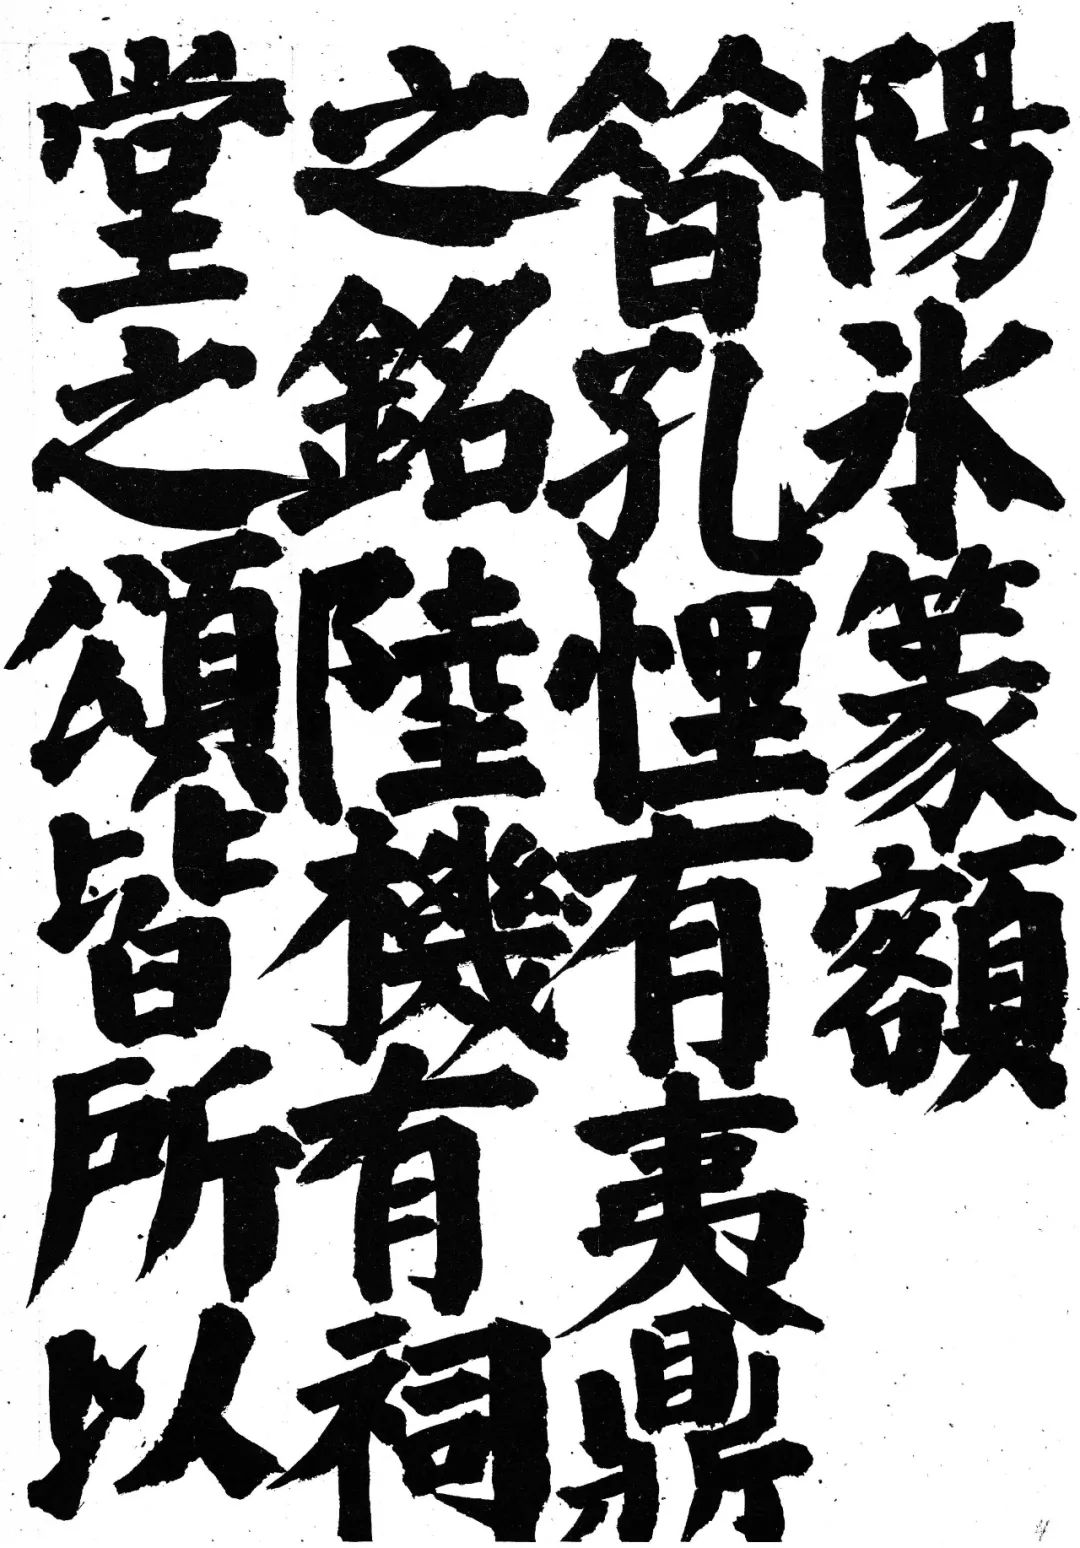 陽氷篆額
昔孔悝有夷鼎
之銘陸機有祠
堂之頌皆所以